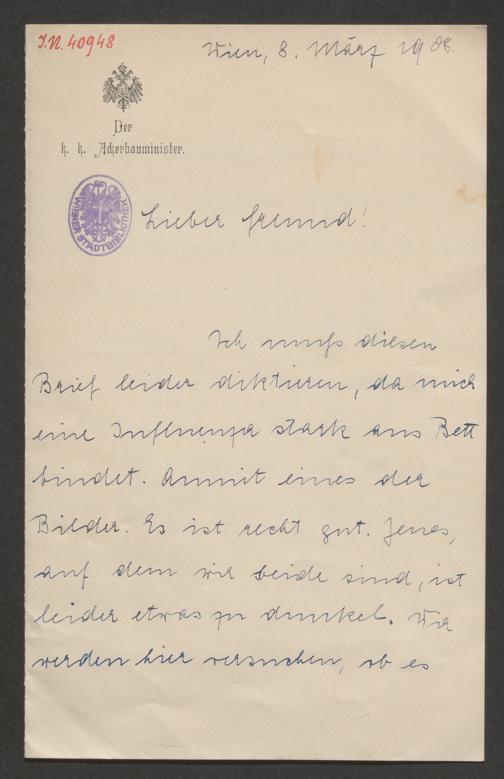 J.N. 40948
Wien, 8. März 1908.
Der
k. k. Ackerbauminister.
WIENER STADTBIBLIOTHEK
Lieber Freund!
Ich muß diesen
Brief leider diktieren, da mich
eine Influenza stark ans Bett
bindet. Anmit eines der
Bilder. Es ist recht gut. Jenes,
auf dem wir beide sind, ist
leider etwas zu dunkel. Wir
werden hier versuchen, ob es